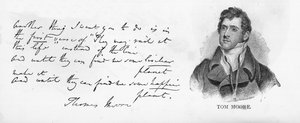 Another thing I want you to do is in
the first verse of "They may rail at
this life" instead of the line
and until they can find me some
planet
make it
and until they can find me some happier
planet.
Thomas Moore
TOM MOORE.